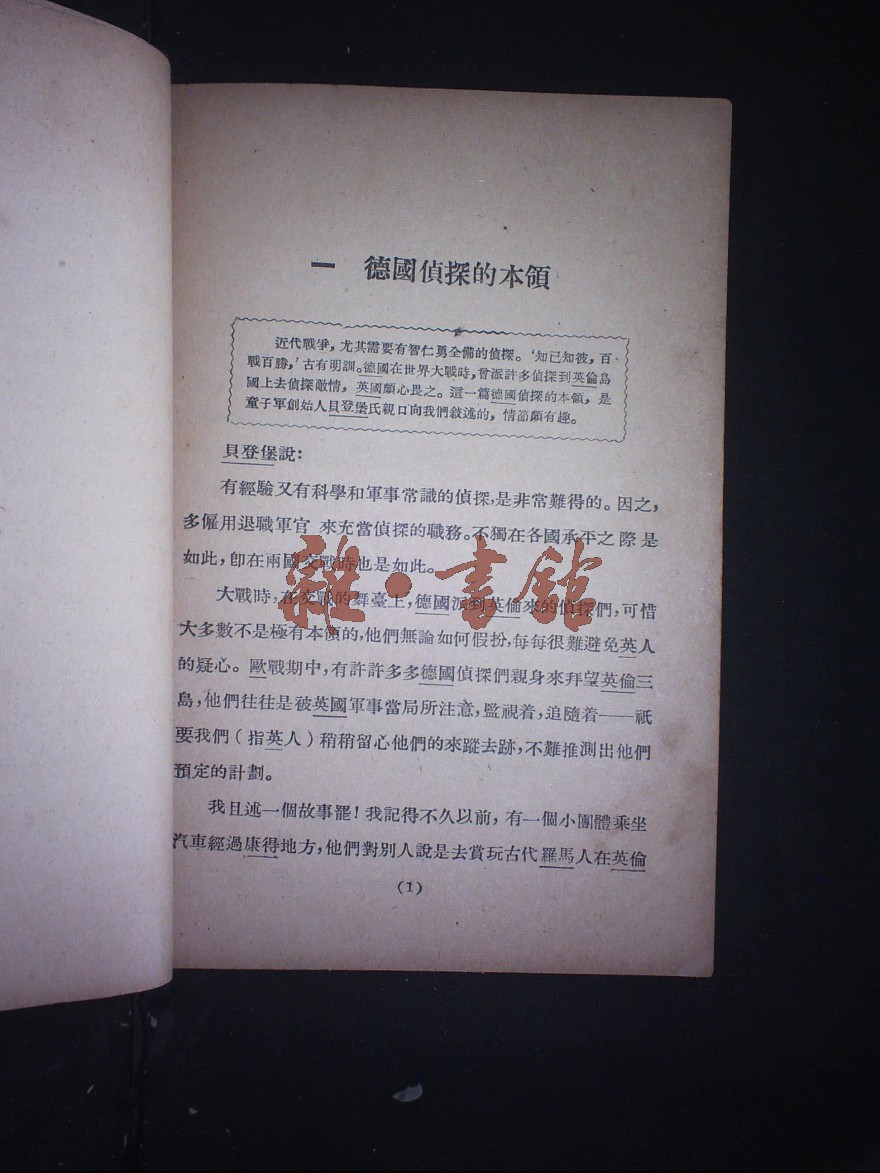 一　德國偵探的本領
近代戰爭，尤其需要有智仁勇全備的偵探。‘知已知彼，百
戰百勝，’古有明訓。德國在世界大戰時，曾派許多偵探到英倫島
國上去偵探敵情，英國頗心畏之。這一篇德國偵探的本領，是
童子軍創始人貝登堡氏親口向我們敘述的，情節頗有趣。
貝登堡說：
有經驗又有科學和軍事常識的偵探，是非常難得的。因之，
多僱用退職軍官 來充當偵探的職務。不獨在各國承平之際是
如此，卽在兩國交戰時也是如此。
大戰時，在交戰的舞臺上，德國派到英倫來的偵探們，可惜
大多數不是極有本領的，他們無論如何假扮，每每很難避免英人
的疑心。歐戰期中，有許許多多德國偵探們親身來拜望英倫三
島，他們往往是被英國軍事當局所注意，監視着，追隨着——祇
要我們（指英人）稍稍留心他們的來蹤去跡，不難推測出他們
預定的計劃。
我且述一個故事罷！我記得不久以前，有一個小團體乘坐
汽車經過康得地方，他們對別人說是去賞玩古代羅馬人在英倫
(1)
雜·書館